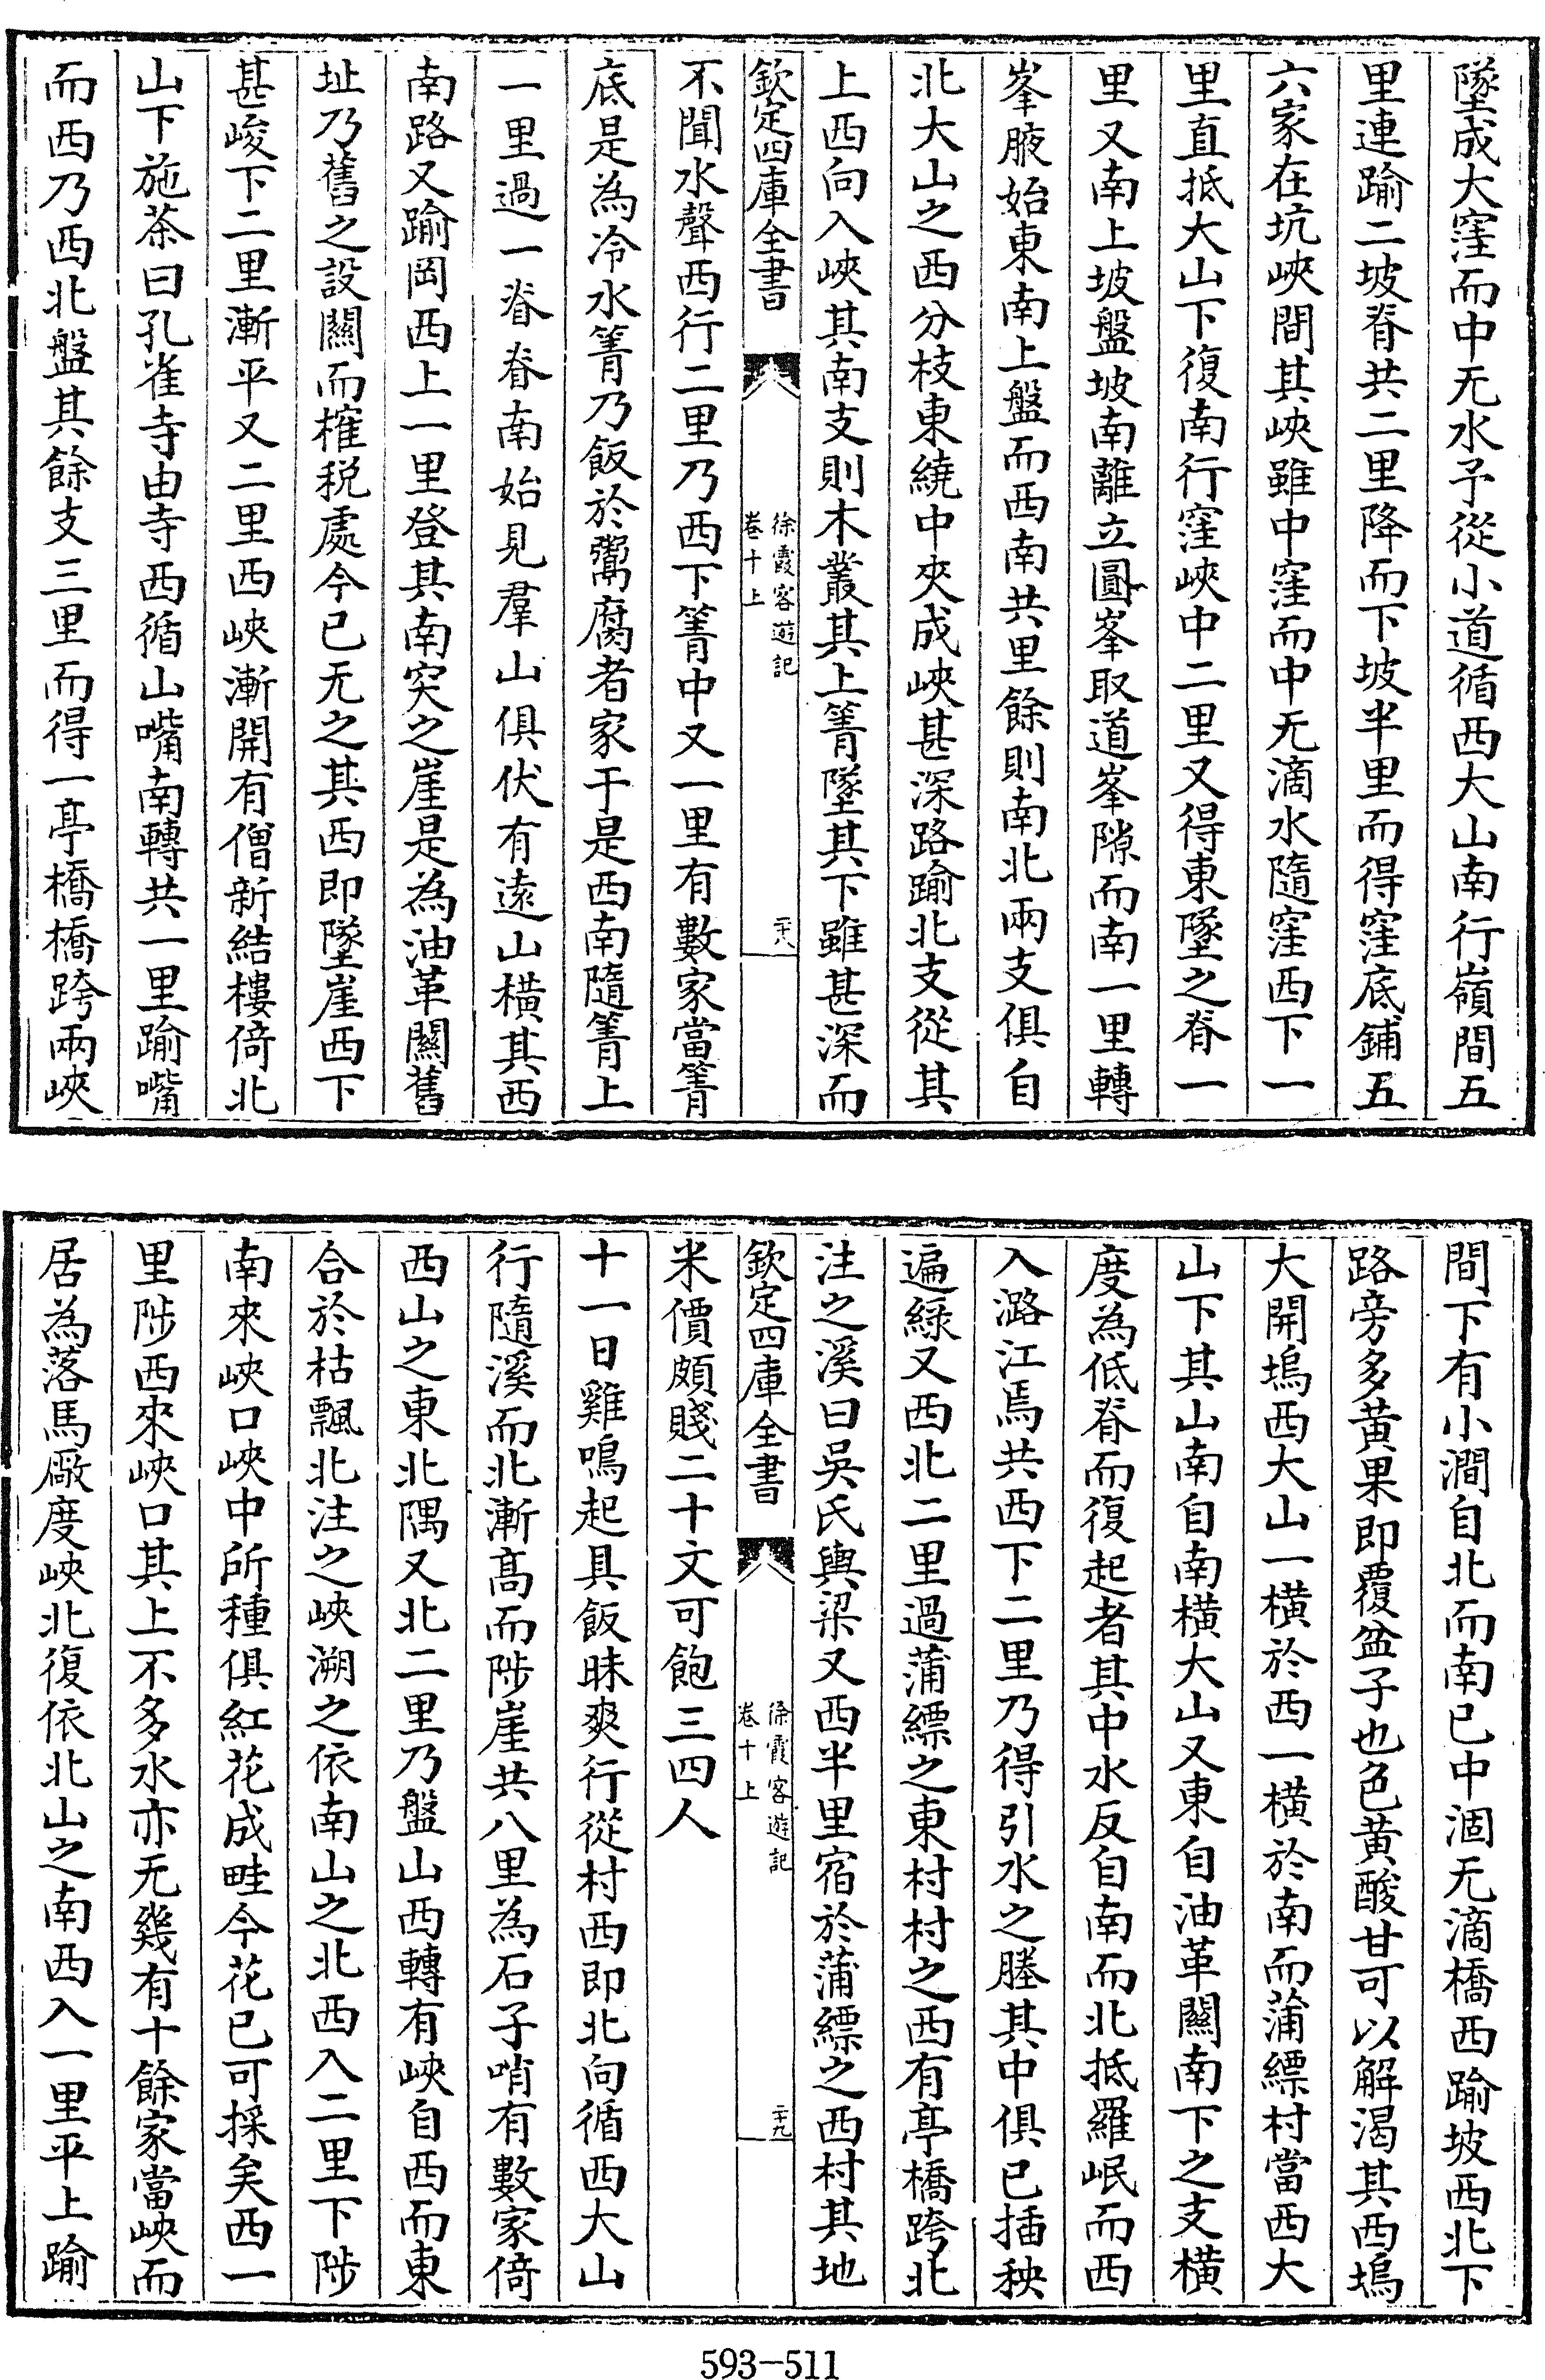 墜成大窪而中无水予從小道循西大山南行嶺間五
里連踰二坡脊共二里降而下坡半里而得窪底鋪五
六家在坑峽間其峽雖中窪而中无滴水隨窪西下一
里直抵大山下復南行窪峽中二里又得東墜之脊一
里又南上坡盤坡南離立圓峯取道峯隙而南一里轉
峯腋始東南上盤而西南共里餘則南北兩支俱自
北大山之西分枝東繞中夾成峽甚深路踰北支從其
上西向入峽其南支則木叢其上箐墜其下雖甚深而
欽定四庫全書
徐霞客遊記
卷十上
二十八
不聞水聲西行二里乃西下箐中又一里有數家當箐
底是為冷水箐乃飯於鬻腐者家于是西南隨箐上
一里過一脊脊南始見羣山俱伏有遠山橫其西
南路又踰岡西上一里登其南突之崖是為油革關舊
址乃舊之設關而榷税處今已无之其西即墜崖西下
甚峻下二里漸平又二里西峽漸開有僧新結樓倚北
山下施茶曰孔雀寺由寺西循山嘴南轉共一里踰嘴
而西乃西北盤其餘支三里而得一亭橋橋跨兩峽
間下有小澗自北而南已中涸无滴橋西踰坡西北下
路旁多黄果即覆盆子也色黄酸甘可以解渴其西塢
大開塢西大山一橫於西一橫於南而蒲縹村當西大
山下其山南自南橫大山又東自油革關南下之支橫
度為低脊而復起者其中水反自南而北抵羅岷而西
入潞江焉共西下二里乃得引水之塍其中俱已插秧
遍緑又西北二里過蒲縹之東村村之西有亭橋跨北
注之溪曰吳氏輿梁又西半里宿於蒲縹之西村其地
欽定四庫全書
徐霞客遊記
卷十上
二十九
米價頗賤二十文可飽三四人
十一日雞鳴起具飯昧爽行從村西即北向循西大山
行隨溪而北漸髙而陟崖共八里為石子哨有數家倚
西山之東北隅又北二里乃盤山西轉有峽自西而東
合於枯飄北注之峽溯之依南山之北西入二里下陟
南來峽口峽中所種俱紅花成畦今花已可採矣西一
里陟西來峽口其上不多水亦无幾有十餘家當峽而
居為落馬厰度峽北復依北山之南西入一里平上踰
593-511